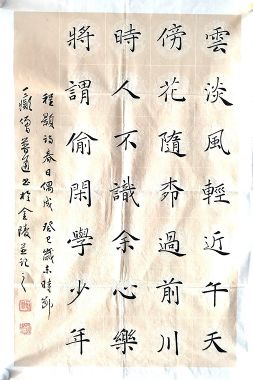 雲淡風輕近午天
傍花隨柳過前川
時人不識余心樂
將謂偷閑學少年
程顥詩春日偶成 癸巳歲末時
普通書於金陵